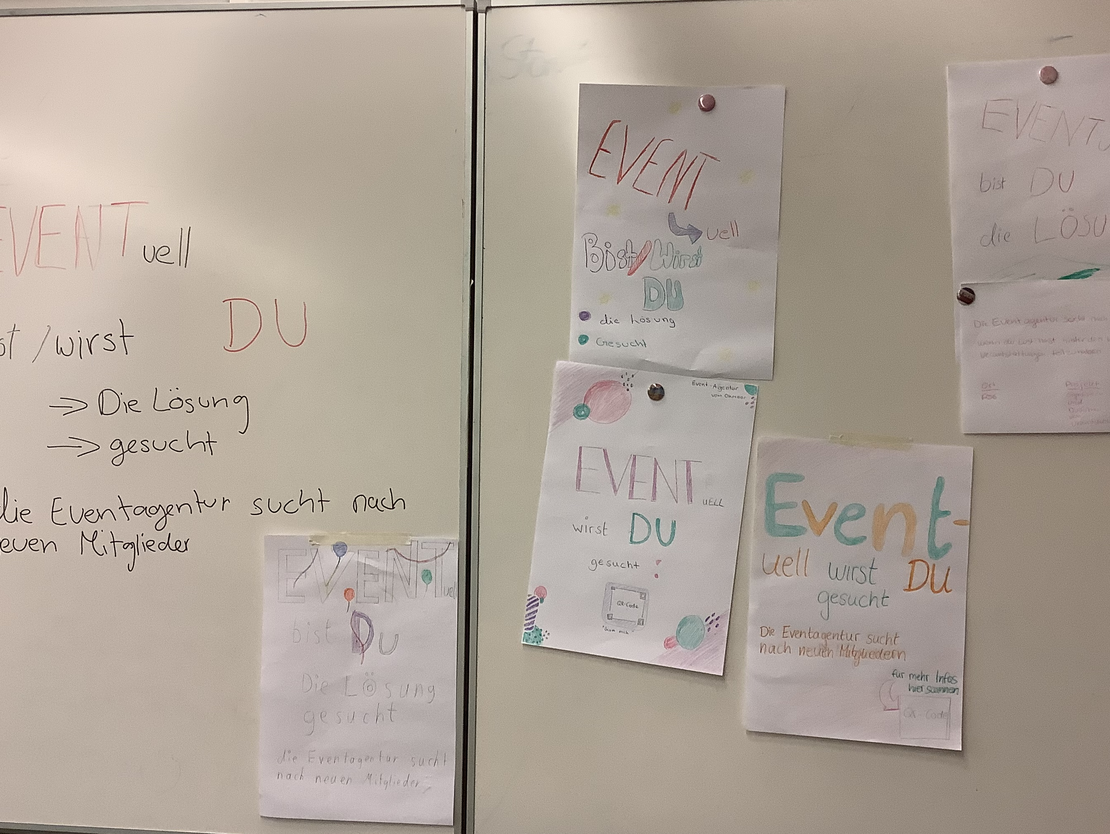 EVENTuell
DU
/wirst
→ Die Lösung
→ gesucht
die Eventagentur sucht nach
neuen Mitglieder
EVENTuell
bist Du
Die Lösung
gesucht
die Eventagentur sucht
nach neuen Mitglieder
EVENT
uell
Bist/Wirst
DU
die Lösung
Gesucht
Event-Agentur
EVENT UELL
wirst DU
gesucht
QR-Code
Event-
uell wirst DU
gesucht
Die Eventagentur sucht
nach neuen Mitgliedern
für mehr Infos
hier scannen
QR-Code
EVENTU
bist DU
die LÖSU